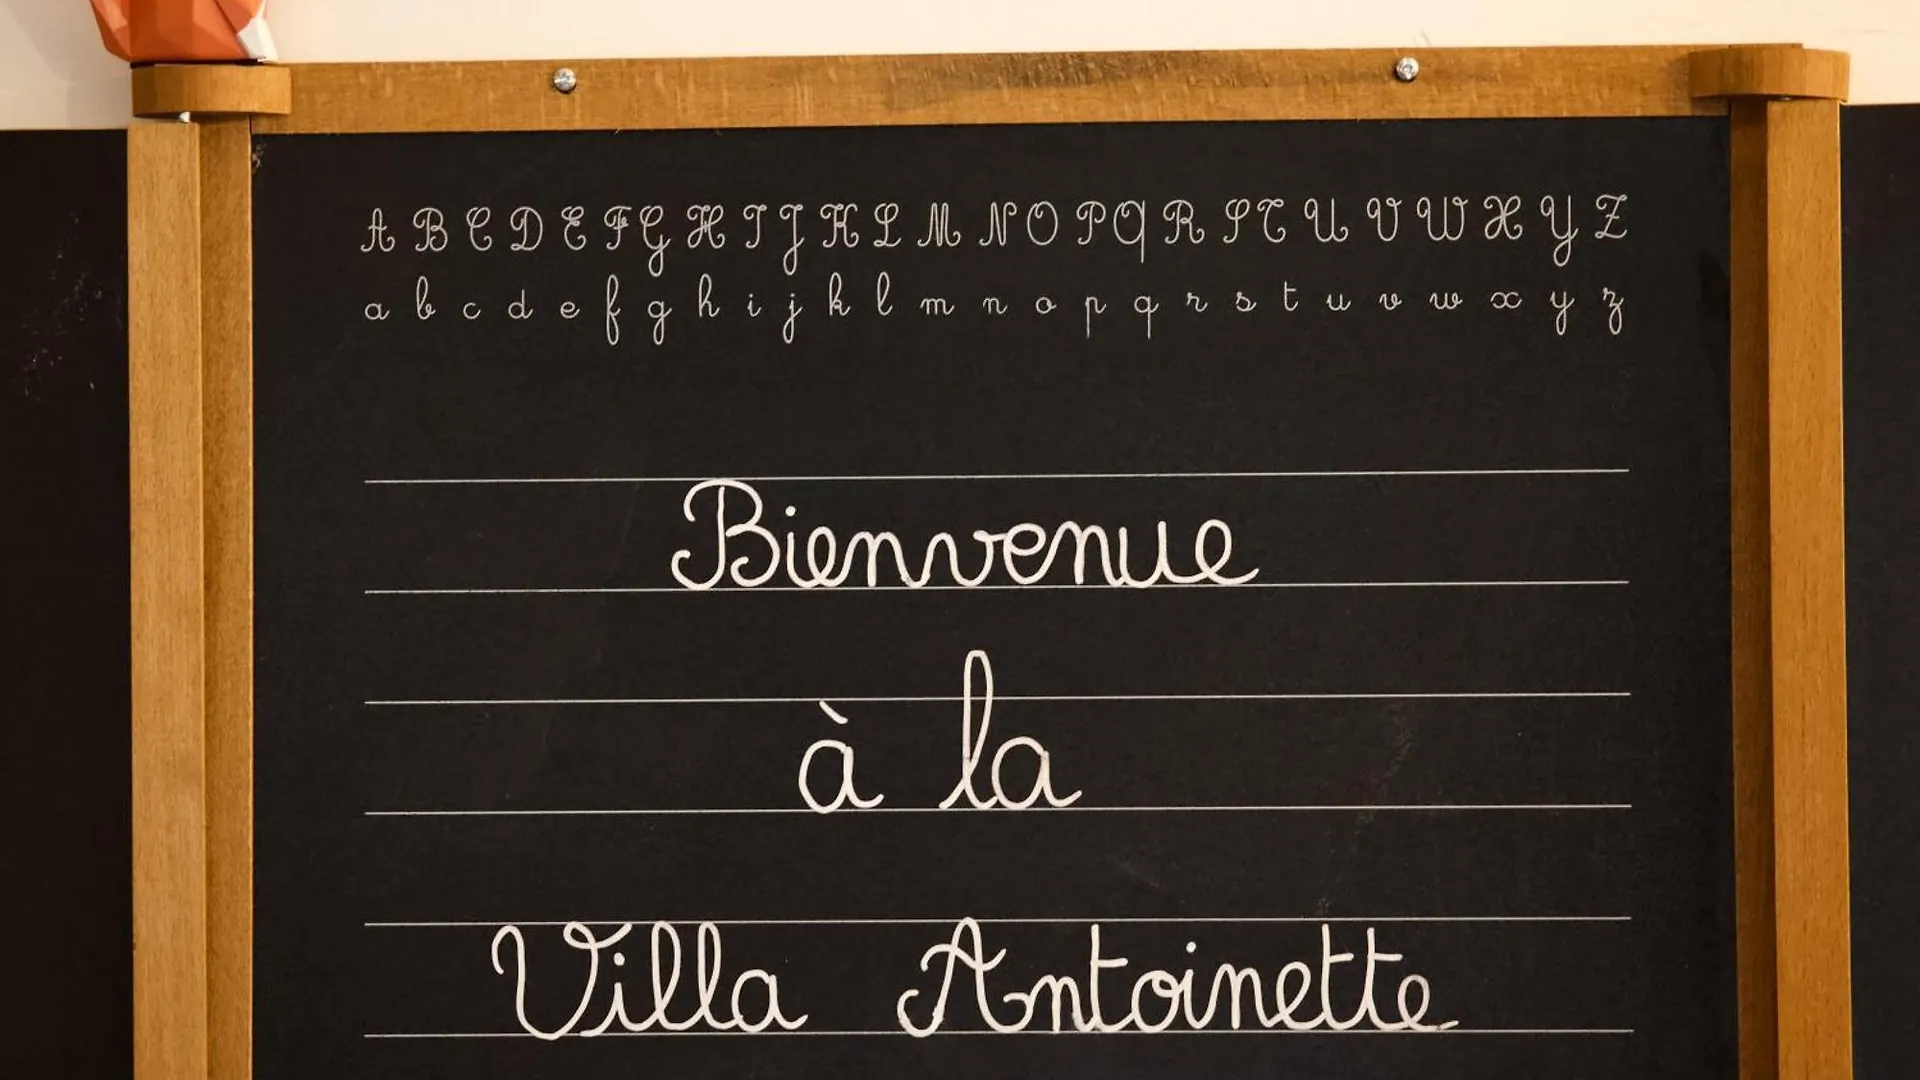 A B C D E F G H I J K L M N O P Q R S T U V W X Y Z
a b c d e f g h i j k l m n o p q r s t u v w x y z
Bienvenue
à la
Villa Antoinette